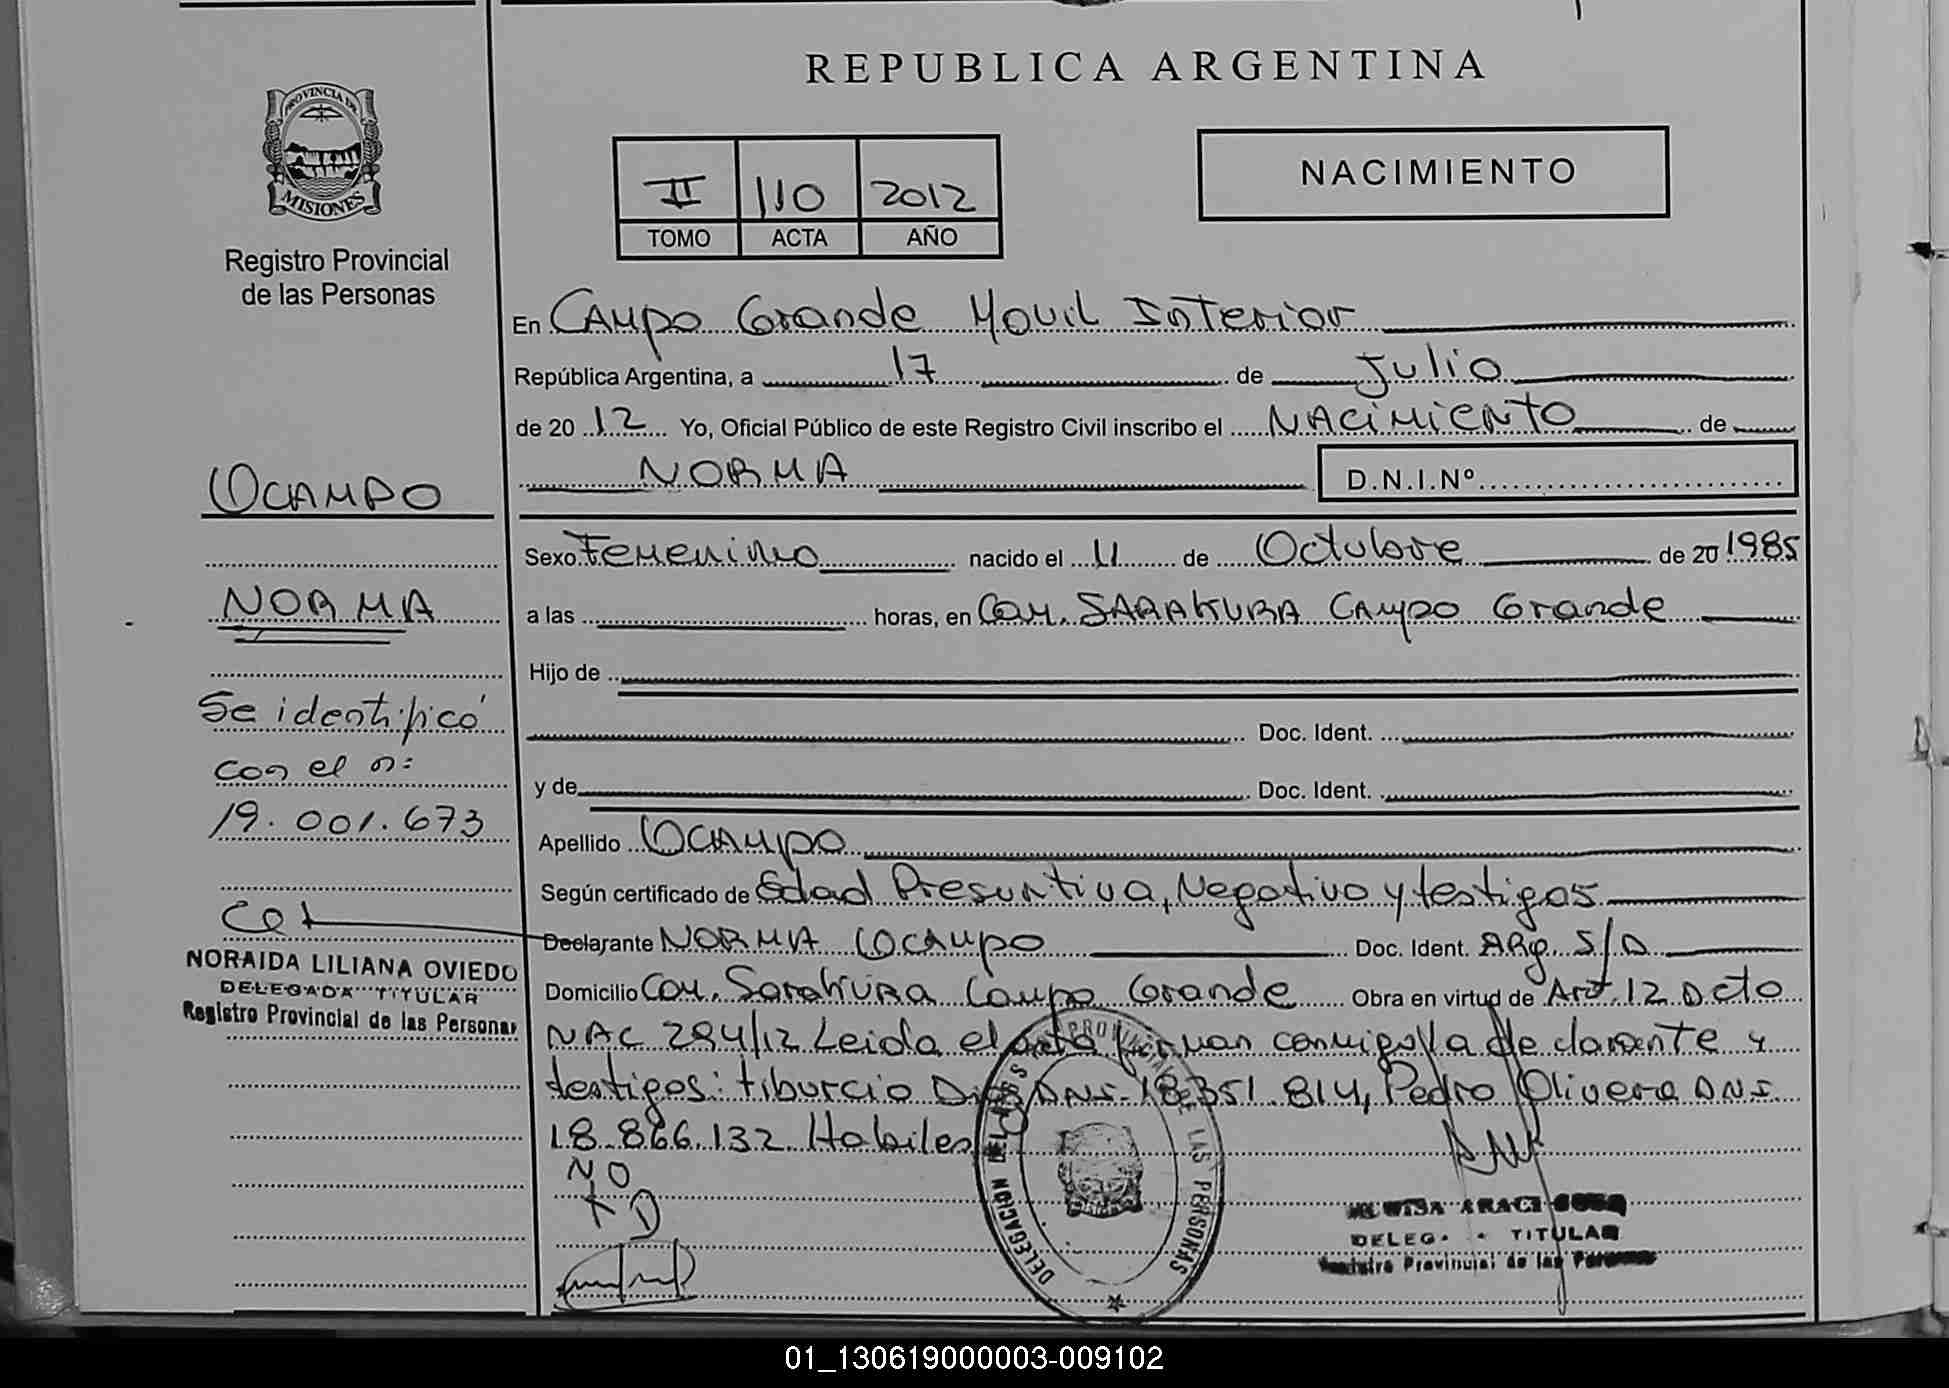 REPUBLICA ARGENTINA
PROVINCIA DE
MISIONES
Registro Provincial
de las Personas
II 110 2012
TOMO ACTA AÑO
NACIMIENTO
En Campo Grande Movil Interior
República Argentina, a 17 de Julio
de 2012 Yo, Oficial Público de este Registro Civil inscribo el NACIMIENTO de
NORMA D.N.I.Nº
OCAMPO
NORMA
Se identificó
con el n:
19.001.673
NORAIDA LILIANA OVIEDO
DELEGADA TITULAR
Registro Provincial de las Personas
Sexo Femenino nacido el 11 de Octubre de 20 1985
a las horas, en Com. SARAKURA Campo Grande
Hijo de
Doc. Ident.
y de Doc. Ident.
Apellido Ocampo
Según certificado de Edad Presuntiva, Negativo y testigos
Declarante NORMA Ocampo Doc. Ident. Arg. S/D
Domicilio Com. Sarakura Campo Grande Obra en virtud de Art. 12 Dcto
NAC 294/12 Leida el acta firman conmigo la declarante y
testigos: tiburcio DNI 18.351.814, Pedro Olivera DNI
18.866.132 Habiles
NO
TD
DELEGACION DEL REGISTRO PROVINCIAL DE LAS PERSONAS
ARACI
DELEG. TITULAR
Registro Provincial de las Personas
01_130619000003-009102